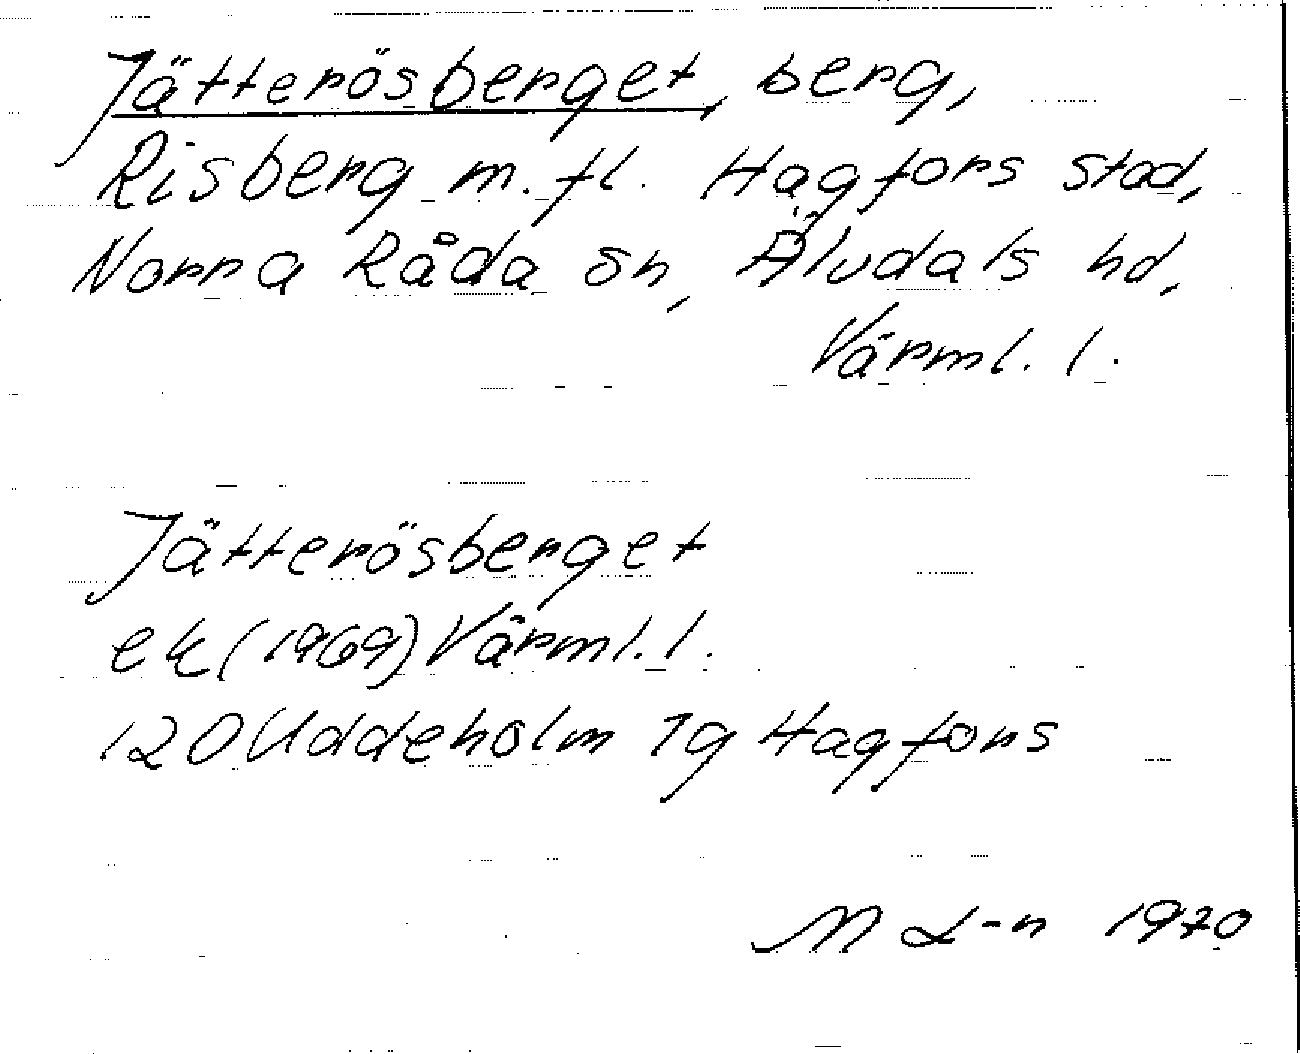 Jätterösberget, berg,
Risberg m.fl. Hagfors stad,
Norra Råda sn, Älvdals hd,
Värml. l.
Jätterösberget
ek (1969) Värml. l.
120 Uddeholm 7g Hagfors
M L-n 1970